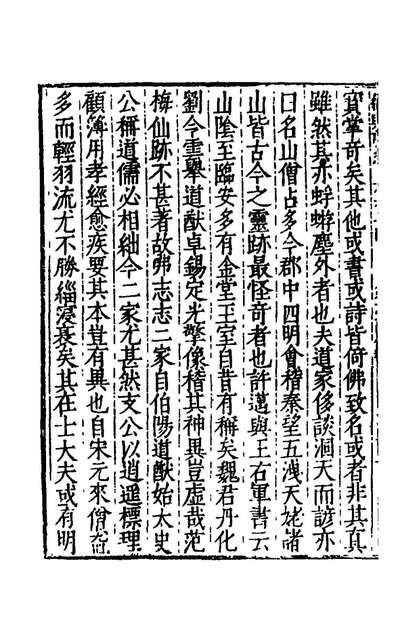 寳掌奇矣其他或書或詩皆倚佛致名或者非其真
雖然其亦蜉蝣塵外者也夫道家侈談洞天而諺亦
曰名山僧占多今郡中四明會稽秦望五洩天姥諸
山皆古今之靈跡最怪奇者也許邁與王右軍書云
山陰至臨安多有金堂玉室自昔有稱矣魏君丹化
劉令雲舉道猷卓錫定光擎像稽其神異豈虛哉范
梅仙跡不甚著故弗志志二家自伯陽道猷始太史
公稱道儒必相絀今二家尤甚然支公以逍遥標理
顧簿用孝經愈疾要其本豈有異也自宋元來僧
多而輕羽流尤不勝緇寖衰矣其在上大夫或有明